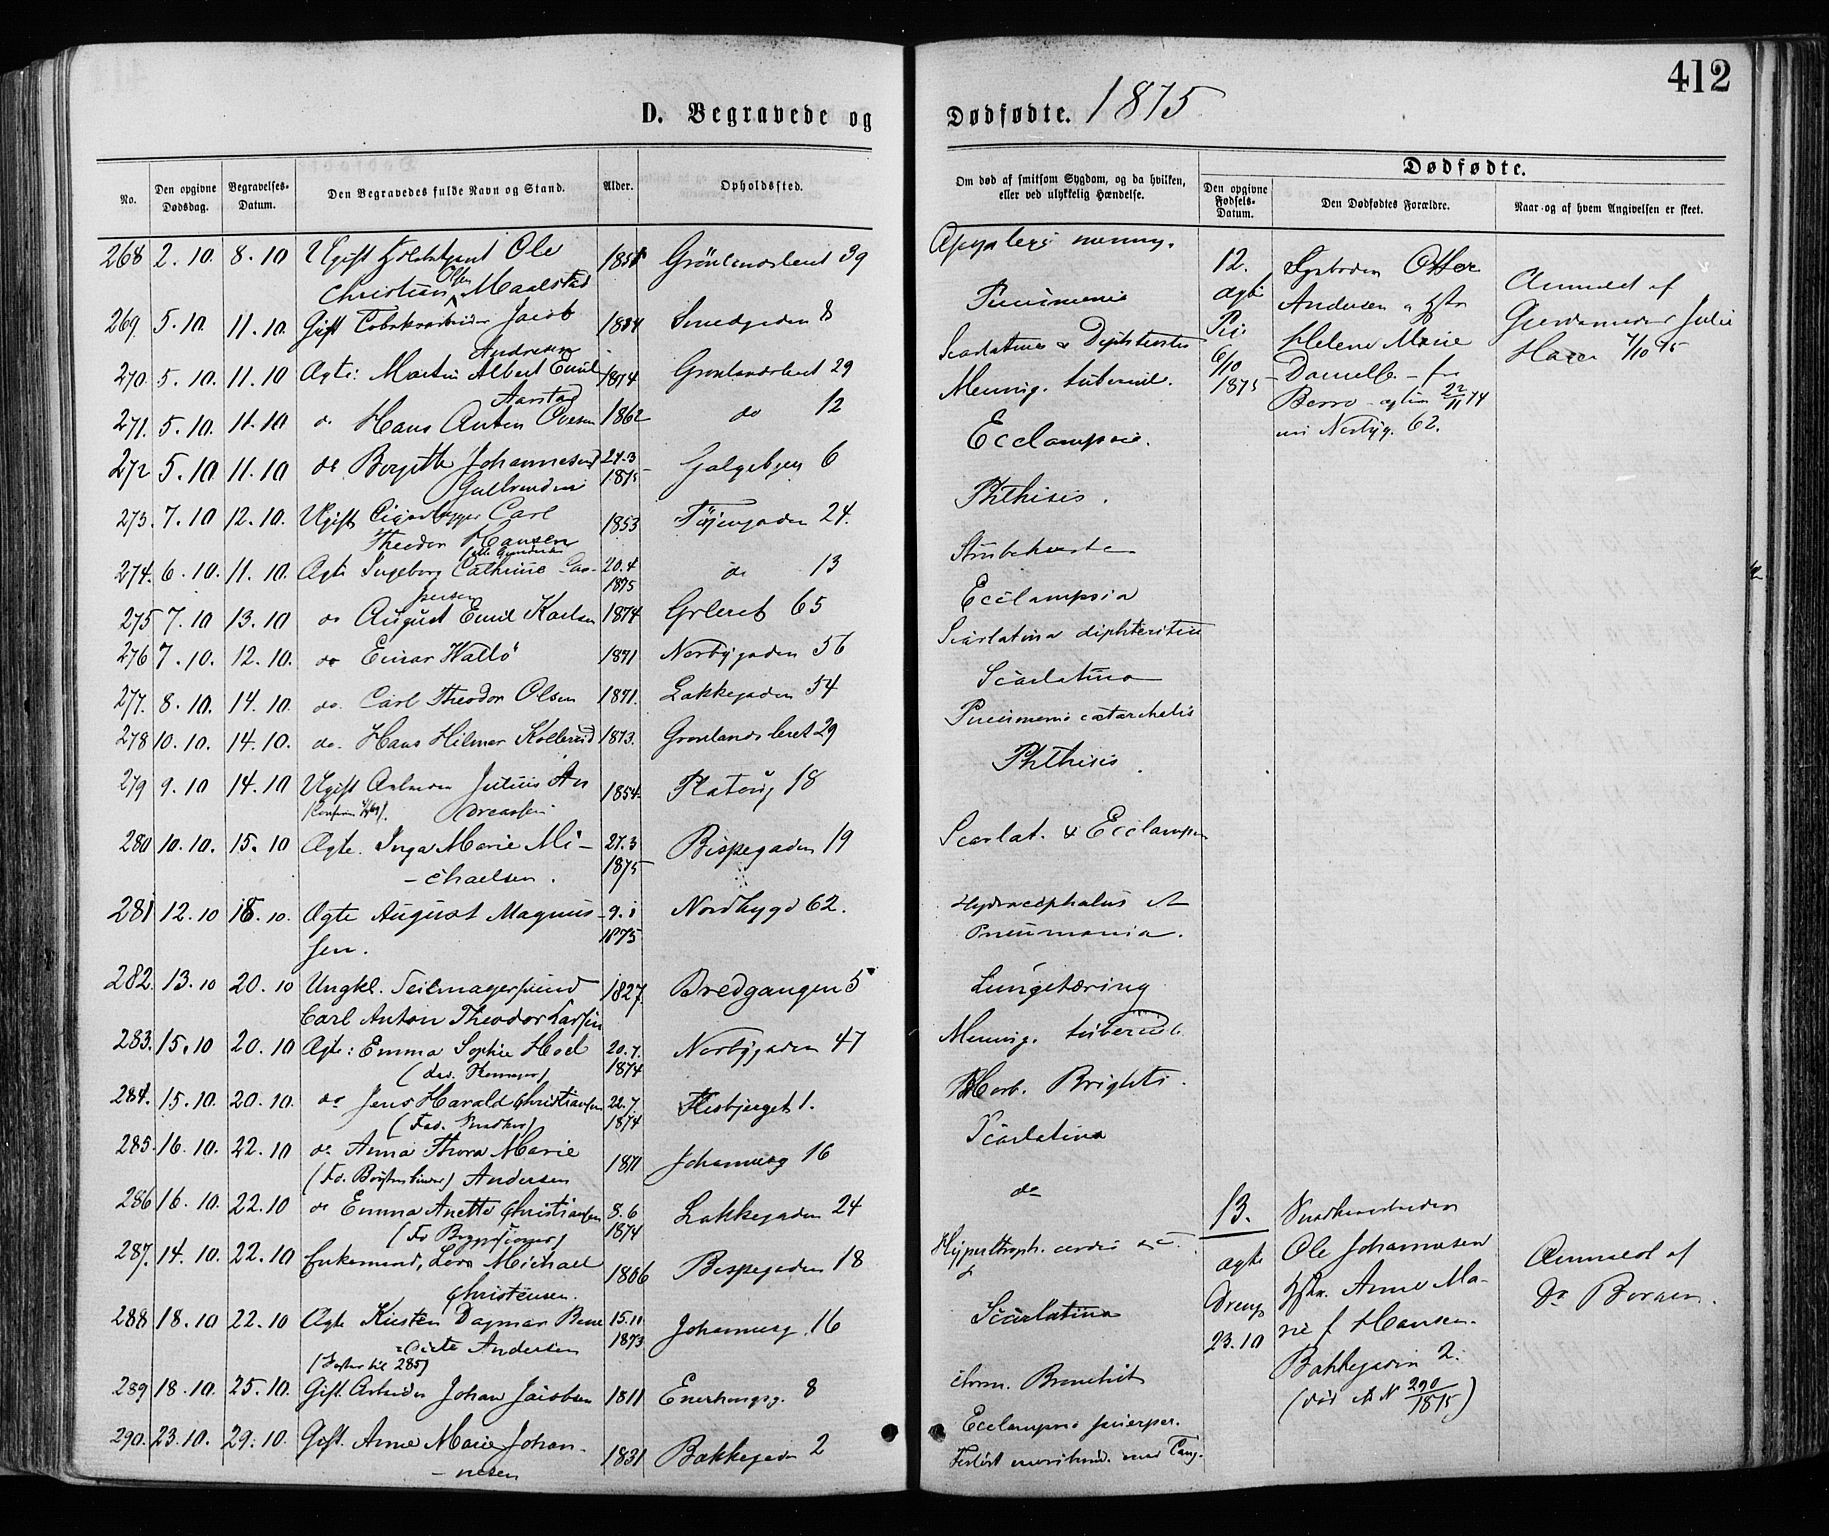 412
D. Begravede og Dødfødte. 1875
No.
Den opgivne Dødsdag.
Begravelses-Datum.
Den Begravedes fulde Navn og Stand.
Alder.
Opholdssted.
Om død af smitsom Sygdom, og da hvilken, eller ved ulykkelig Hændelse.
Dødfødte.
Den opgivne Fødsels-Datum.
Den Dødfødtes Forældre.
Naar og af hvem Angivelsen er skeet.
268 2.10 8.10 Ugift Ole Grönlandsleret 39
Christian Olsen Maalstad
269. 5.10. 11.10. Gift Jacob 1834 Smedgaden 8 Pneumonie
Andresen
270. 5.10. 11.10 Ægte: Martin Albert Emil 1874 Grønlandsleret 29 Scarlatina & Diphterites
Aarstad
271. 5.10. 11.10 do Hans Anton Ovesen 1862 do 12 Mening. tubercul.
272 5.10 11.10 do Bergitte Johannesen 24.3 1875 Galgebjerg 6 Ecclampsie.
273. 7.10 12.10. Ugift Carl 1853 Tøjengaden 24. Phthisis.
Theodor Hansen
274. 6.10. 11.10. Ægte Ingeborg Cathrine Cas- 20.4 1875 do 13 Strubehoste
persen
275 7.10 13.10 do August Emil Karlsen 1874 Grleret 65 Ecclampsia
276 7.10. 12.10. do Einar Hallö 1871 Norbygaden 56 Scarlatina diphteritica
277. 8.10. 14.10. do. Carl Theodor Olsen 1871. Lakkegaden 54 Scarlatina
278 10.10. 14.10. do. Hans Hilmar Kollerud 1873. Grønlandsleret 29 Pneumonie catarrhalis
279 9.10 14.10 Ugift Arbeider Julius An 1854 Platoug 18 Phthisis.
dreassen
280 10.10. 15.10 Ægte. Inga Marie Mi- 27.3 1875 Bispegaden 19 Scarlat. & Ecclampsia
-chaelsen.
281 12.10 18.10. Ægte August Magnus- 9.1 1875 Nordbygd 62. Hydrocephalus &
sen. Pneumonia.
282. 13.10 20.10 Ungkl. Seilmagersvend 1827. Bredgangen 5 Lungetæring
Carl Anton Theodor Larsen
283. 15.10 20.10 Ægte: Emma Sophie Hoel 20.7. 1874 Norbygaden 47 Mening. tubercul.
284. 15.10. 20.10. do Jens Harald Christiansen 22.7 1874 Flisbjerget 1. Morb. Brighti.
(Fad. Snedker)
285. 16.10. 22.10 do Anna Thora Marie 1871 Johannesg 16 Scarlatina
Andersen
286 16.10. 22.10 do Emma Anette Christiansen 8.6 1874 Lakkegaden 24 do
287. 14.10. 22.10 Enkemand, Lars Michael 1806 Bispegaden 18 Hypertroph. cordis
Christensen.
288 18.10 22.10 Ægte Kirsten Dagmar Bene 15.11 1873 Johannesg. 16 Scarlatina
dicte Andersen
(Søster til 285)
289 18.10. 25.10. Gift Arbeider Johan Jacobsen 1811 Enerhaugsg. 8 chron. Bronchit
290. 23.10. 29.10. Gift. Anne Marie Johan- 1831 Bakkegaden 2 Ecclampsia puerper.
-nesen
12.
ægte
Pige
6/10
1875
Andersen
Helene Marie
Norbyg. 62.
Anmeldt af
Gjordemoder Julie
13.
ægte
Dreng
23.10
Snedkersvend
Ole Johannesen
Hstr. Anne Ma-
rie f Hansen.
Bakkegaden 2.
(død No 290/1875)
Anmeldt af
Dr